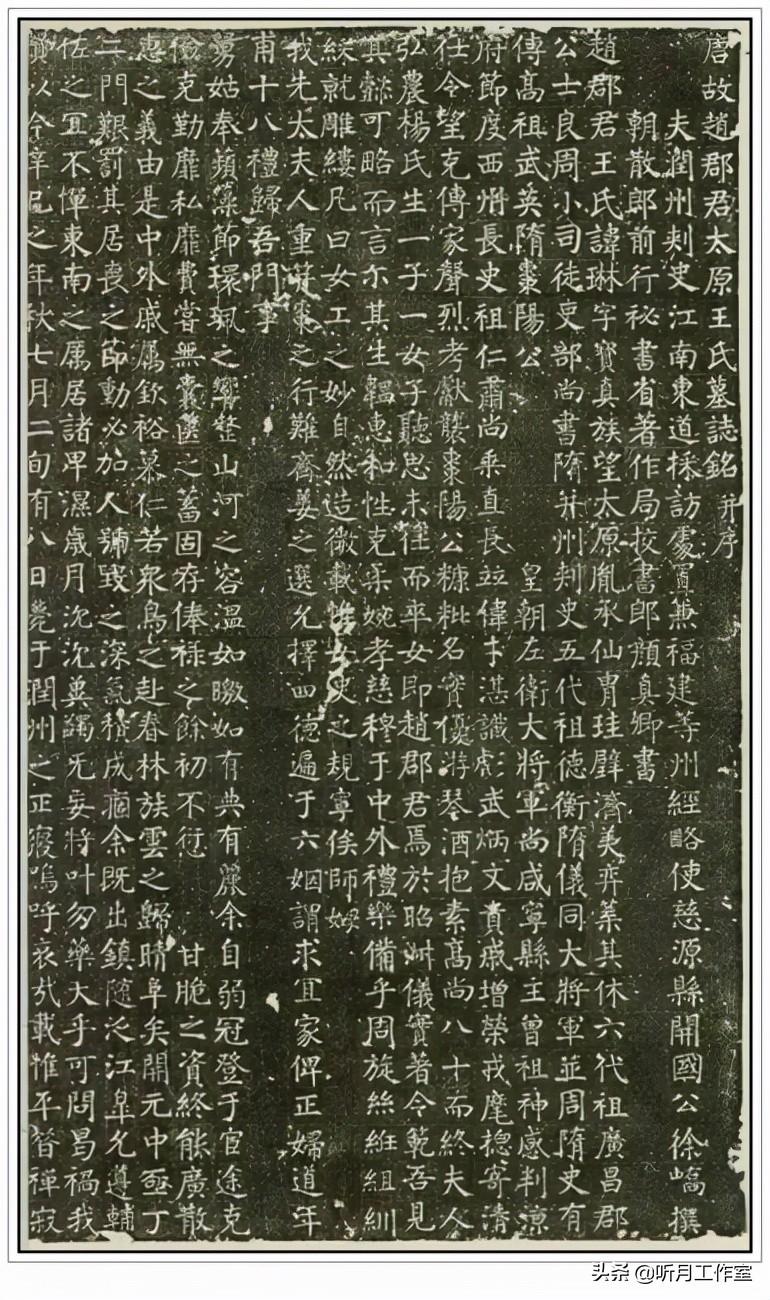 唐故趙郡君太原王氏墓誌銘 并序
夫潤州刾史江南東道採訪處置兼福建等州經略使慈源縣開國公徐嶠撰
朝散郎前行祕書省著作局挍書郎顏真卿書
趙郡君王氏諱琳字寶真族望太原胤承仙胄珪璧濟美弈葉其休六代祖廣昌郡
公士良周小司徒吏部尚書隋并州刾史五代祖德衡隋儀同大將軍並周隋史有
傳高祖武英隋棗陽公 皇朝左衛大將軍尚咸寧縣主曾祖神感判涼
府節度西州長史祖仁肅尚乘直長竝偉才湛識彪武炳文貴戚增榮戎麾揔寄清
任令望克傳家聲烈考獻襲棗陽公糠粃名實優游琴酒抱素高尚八十而終夫人
弘農楊氏生一子一女子聽思未往而卒女即趙郡君焉於昭淑儀實著令範吾見
其繇可略而言尒其生韞惠和性克柔婉孝慈穆于中外禮樂備乎周旋絲紝組紃
綟就雕縷凡曰女工之妙自然造微載女史之規寧俟師姆
我先太夫人重棗之行難齊姜之選允擇四德遍于六姻謂求宜家俾正婦道年
甫十八禮歸吾門事
舅姑奉蘋藻節環珮之響整山河之容溫如曒如有典有麗余自弱冠登于官途克
儉克勤靡私靡費嘗無囊篋之蓄固存俸祿之餘初不衍 甘脆之資終能廣散
惠之義由是中外戚屬欽裕慕仁若眾鳥之赴春林族雲之歸晴阜矣開元中亟丁
二門艱罰其居喪之節動必加人號毀之深氣積成痼余既出鎮隨沿江皐允遵輔
佐之宜不憚東南之厲居諸卑濕歲月沉沉冀蠲无妄將叶勿藥大乎可問曷禍我
賢以今辛巳之年秋七月二旬有八日薨于潤州之正寢嗚呼哀哉載惟平昔禪寂
头条 @听月工作室